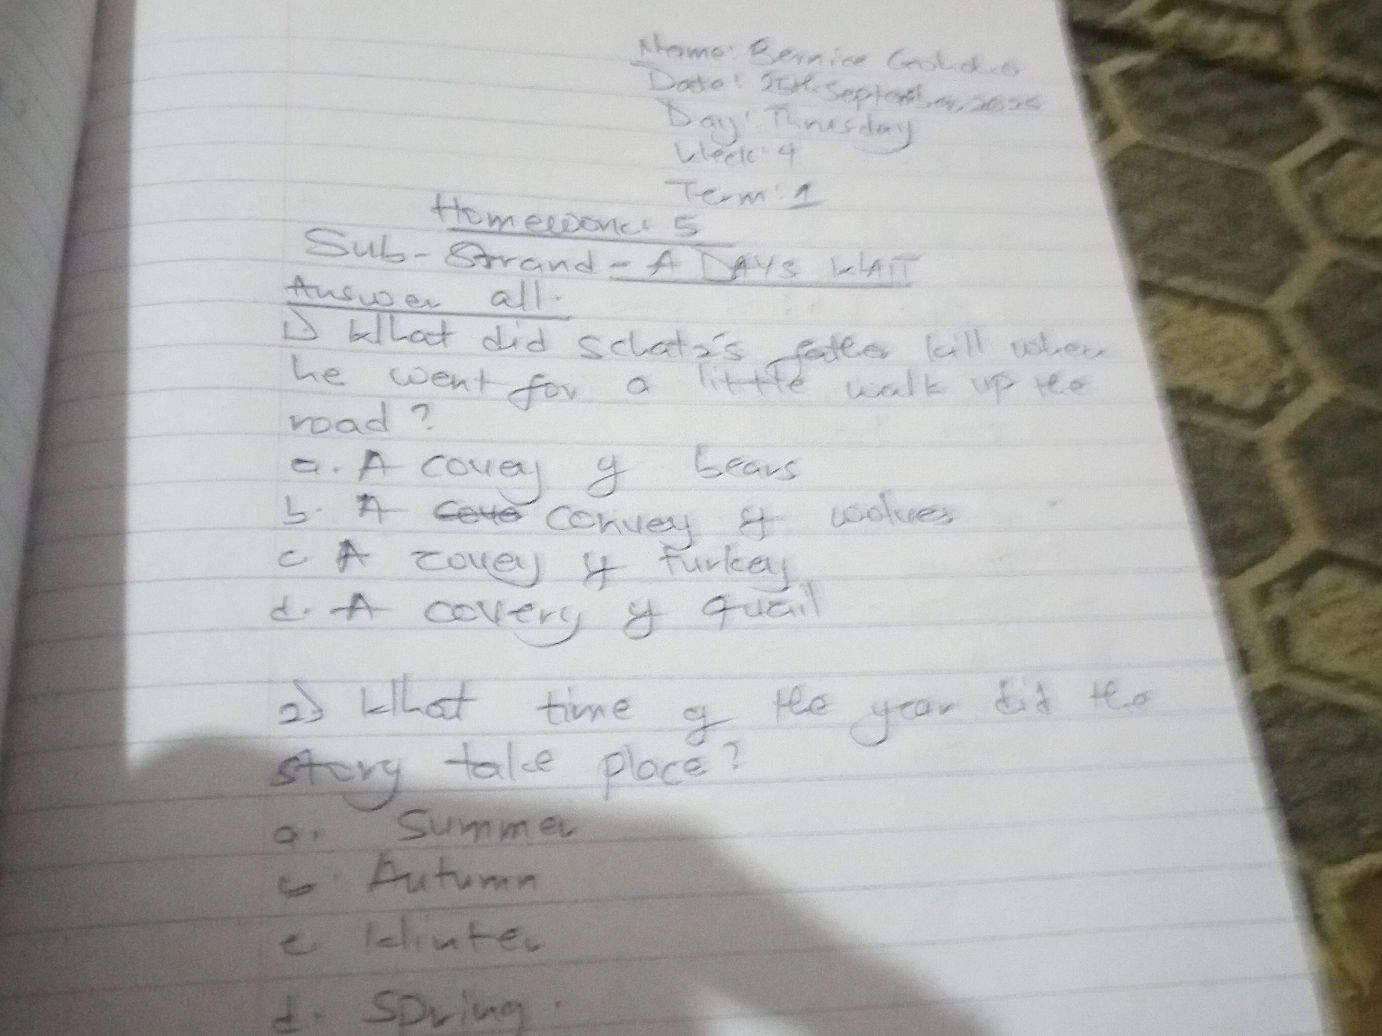 Name: Bernice
Date: 25th September, 2025
Day: Thrusday
Week: 4
Term: 1
Homework 5
Sub-Strand - A DAYS WAIT
Answer all.
1) What did Schatz's father kill when
he went for a little walk up the
road?
a. A covey of bears
b. A convey of wolves
c. A covey of turkey
d. A covery of quail
2) What time of the year did the
story take place?
a. Summer
b. Autumn
c. Winter
d. Spring.